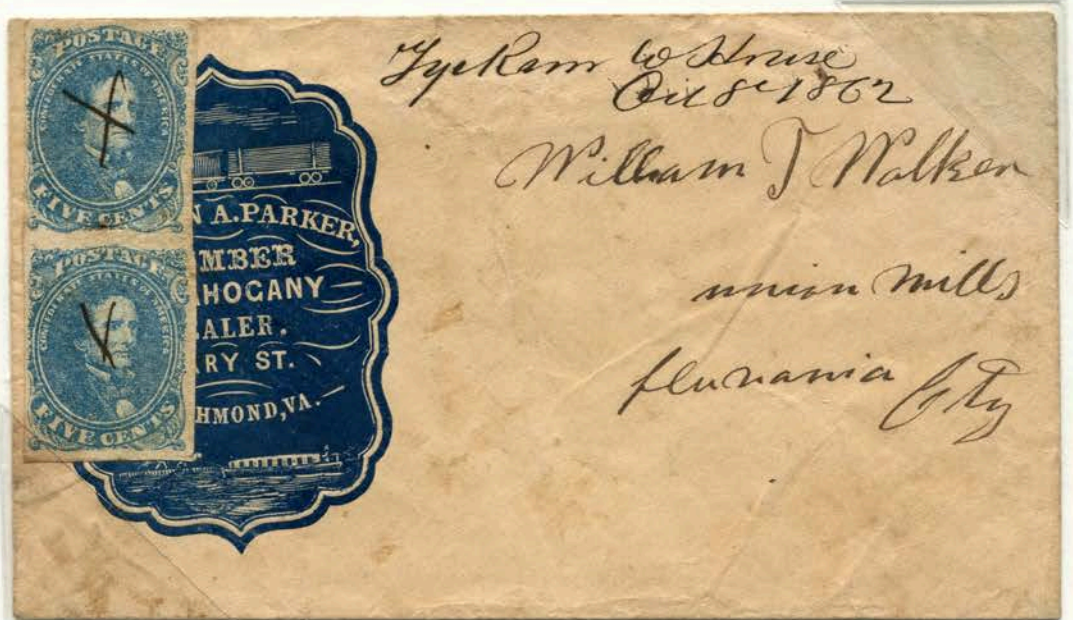 POSTAGE
CONFEDERATE STATES OF AMERICA
FIVE CENTS
POSTAGE
CONFEDERATE STATES OF AMERICA
FIVE CENTS
N A. PARKER,
MBER
AHOGANY
ALER.
RY ST.
HMOND, VA.
1862
William T Walker
union mills
fluvania Cty